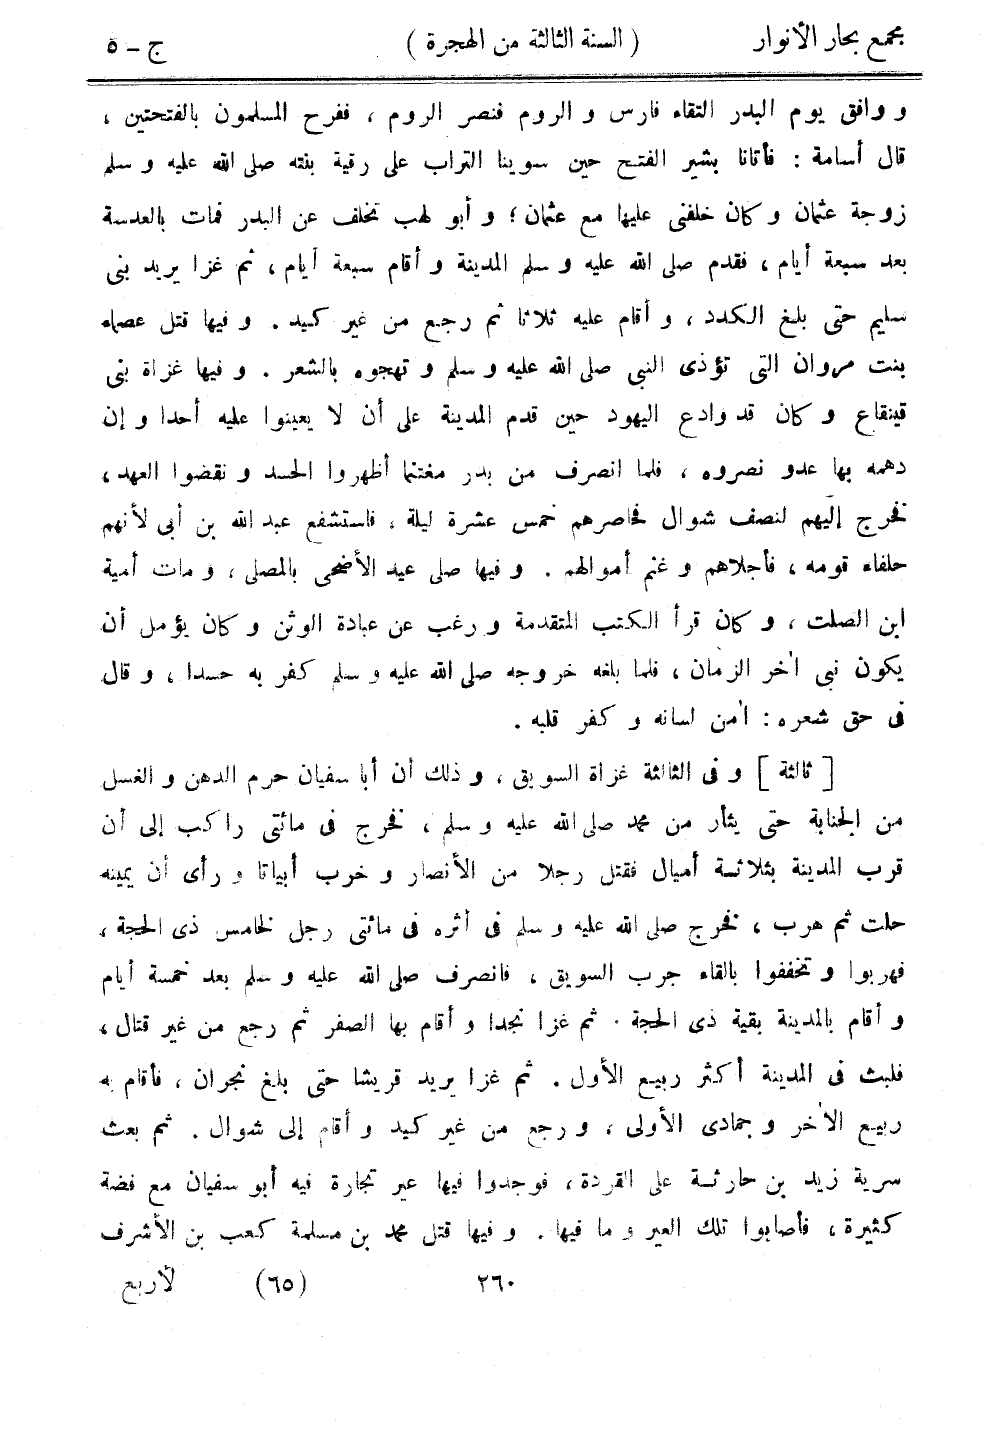 مجمع بحار الأنوار ( السنة الثالثة من الهجرة ) ج - ٥
و وافق يوم البدر التقاء فارس و الروم فنصر الروم ، ففرح المسلمون بالفتحتين ،
قال أسامة : فأتانا بشير الفتح حين سوينا التراب على رقية بنته صلى الله عليه و سلم
زوجة عثمان و كان خلفنى عليها مع عثمان ؛ و أبو لهب تخلف عن البدر فمات بالعدسة
بعد سبعة أيام ، فقدم صلى الله عليه و سلم المدينة و أقام سبعة أيام ، ثم غزا يريد بنى
سليم حتى بلغ الكدد ، و أقام عليه ثلاثا ثم رجع من غير كيد . و فيها قتل عصماء
بنت مروان التى تؤذى النبي صلى الله عليه و سلم و تهجوه بالشعر . و فيها غزاة بنى
قينقاع و كان قد وادع اليهود حين قدم المدينة على أن لا يعينوا عليه أحدا و إن
دهمه بها عدو نصروه ، فلما انصرف من بدر مغتنما أظهروا الحسد و نقضوا العهد ،
فخرج إليهم لنصف شوال فحاصرهم خمس عشرة ليلة ، فاستشفع عبد الله بن أبى لأنهم
حلفاء قومه ، فأجلاهم و غنم أموالهم . و فيها صلى عيد الأضحى بالمصلى ، و مات أمية
ابن الصلت ، و كان قرأ الكتب المتقدمة و رغب عن عبادة الوثن و كان يؤمل أن
يكون نبي اٰخر الزمان ، فلما بلغه خروجه صلى الله عليه و سلم كفر به حسدا ، و قال
فى حق شعره : اٰمن لسانه و كفر قلبه .
[ ثالثة ] و فى الثالثة غزاة السويق ، و ذلك أن أبا سفيان حرم الدهن و الغسل
من الجنابة حتى يثأر من محمد صلى الله عليه و سلم ، فخرج فى مائتى راكب إلى أن
قرب المدينة بثلاثة أميال فقتل رجلا من الأنصار و خرب أبياتا و رأى أن يمينه
حلت ثم هرب ، فخرج صلى الله عليه و سلم فى أثره فى مائتى رجل لخامس ذى الحجة ،
فهربوا و تخففوا بالقاء جرب السويق ، فانصرف صلى الله عليه و سلم بعد خمسة أيام
و أقام بالمدينة بقية ذى الحجة . ثم غزا نجدا و أقام بها الصفر ثم رجع من غير قتال ،
فلبث فى المدينة أكثر ربيع الأول . ثم غزا يريد قريشا حتى بلغ نجران ، فأقام به
ربيع الاٰخر و جمادى الأولى ، و رجع من غير كيد و أقام إلى شوال . ثم بعث
سرية زيد بن حارثة على القردة ، فوجدوا فيها عير تجارة فيه أبو سفيان مع فضة
كثيرة ، فأصابوا تلك العير و ما فيها . و فيها قتل محمد بن مسلمة كعب بن الأشرف
٢٦٠ (٦٥) لأربع